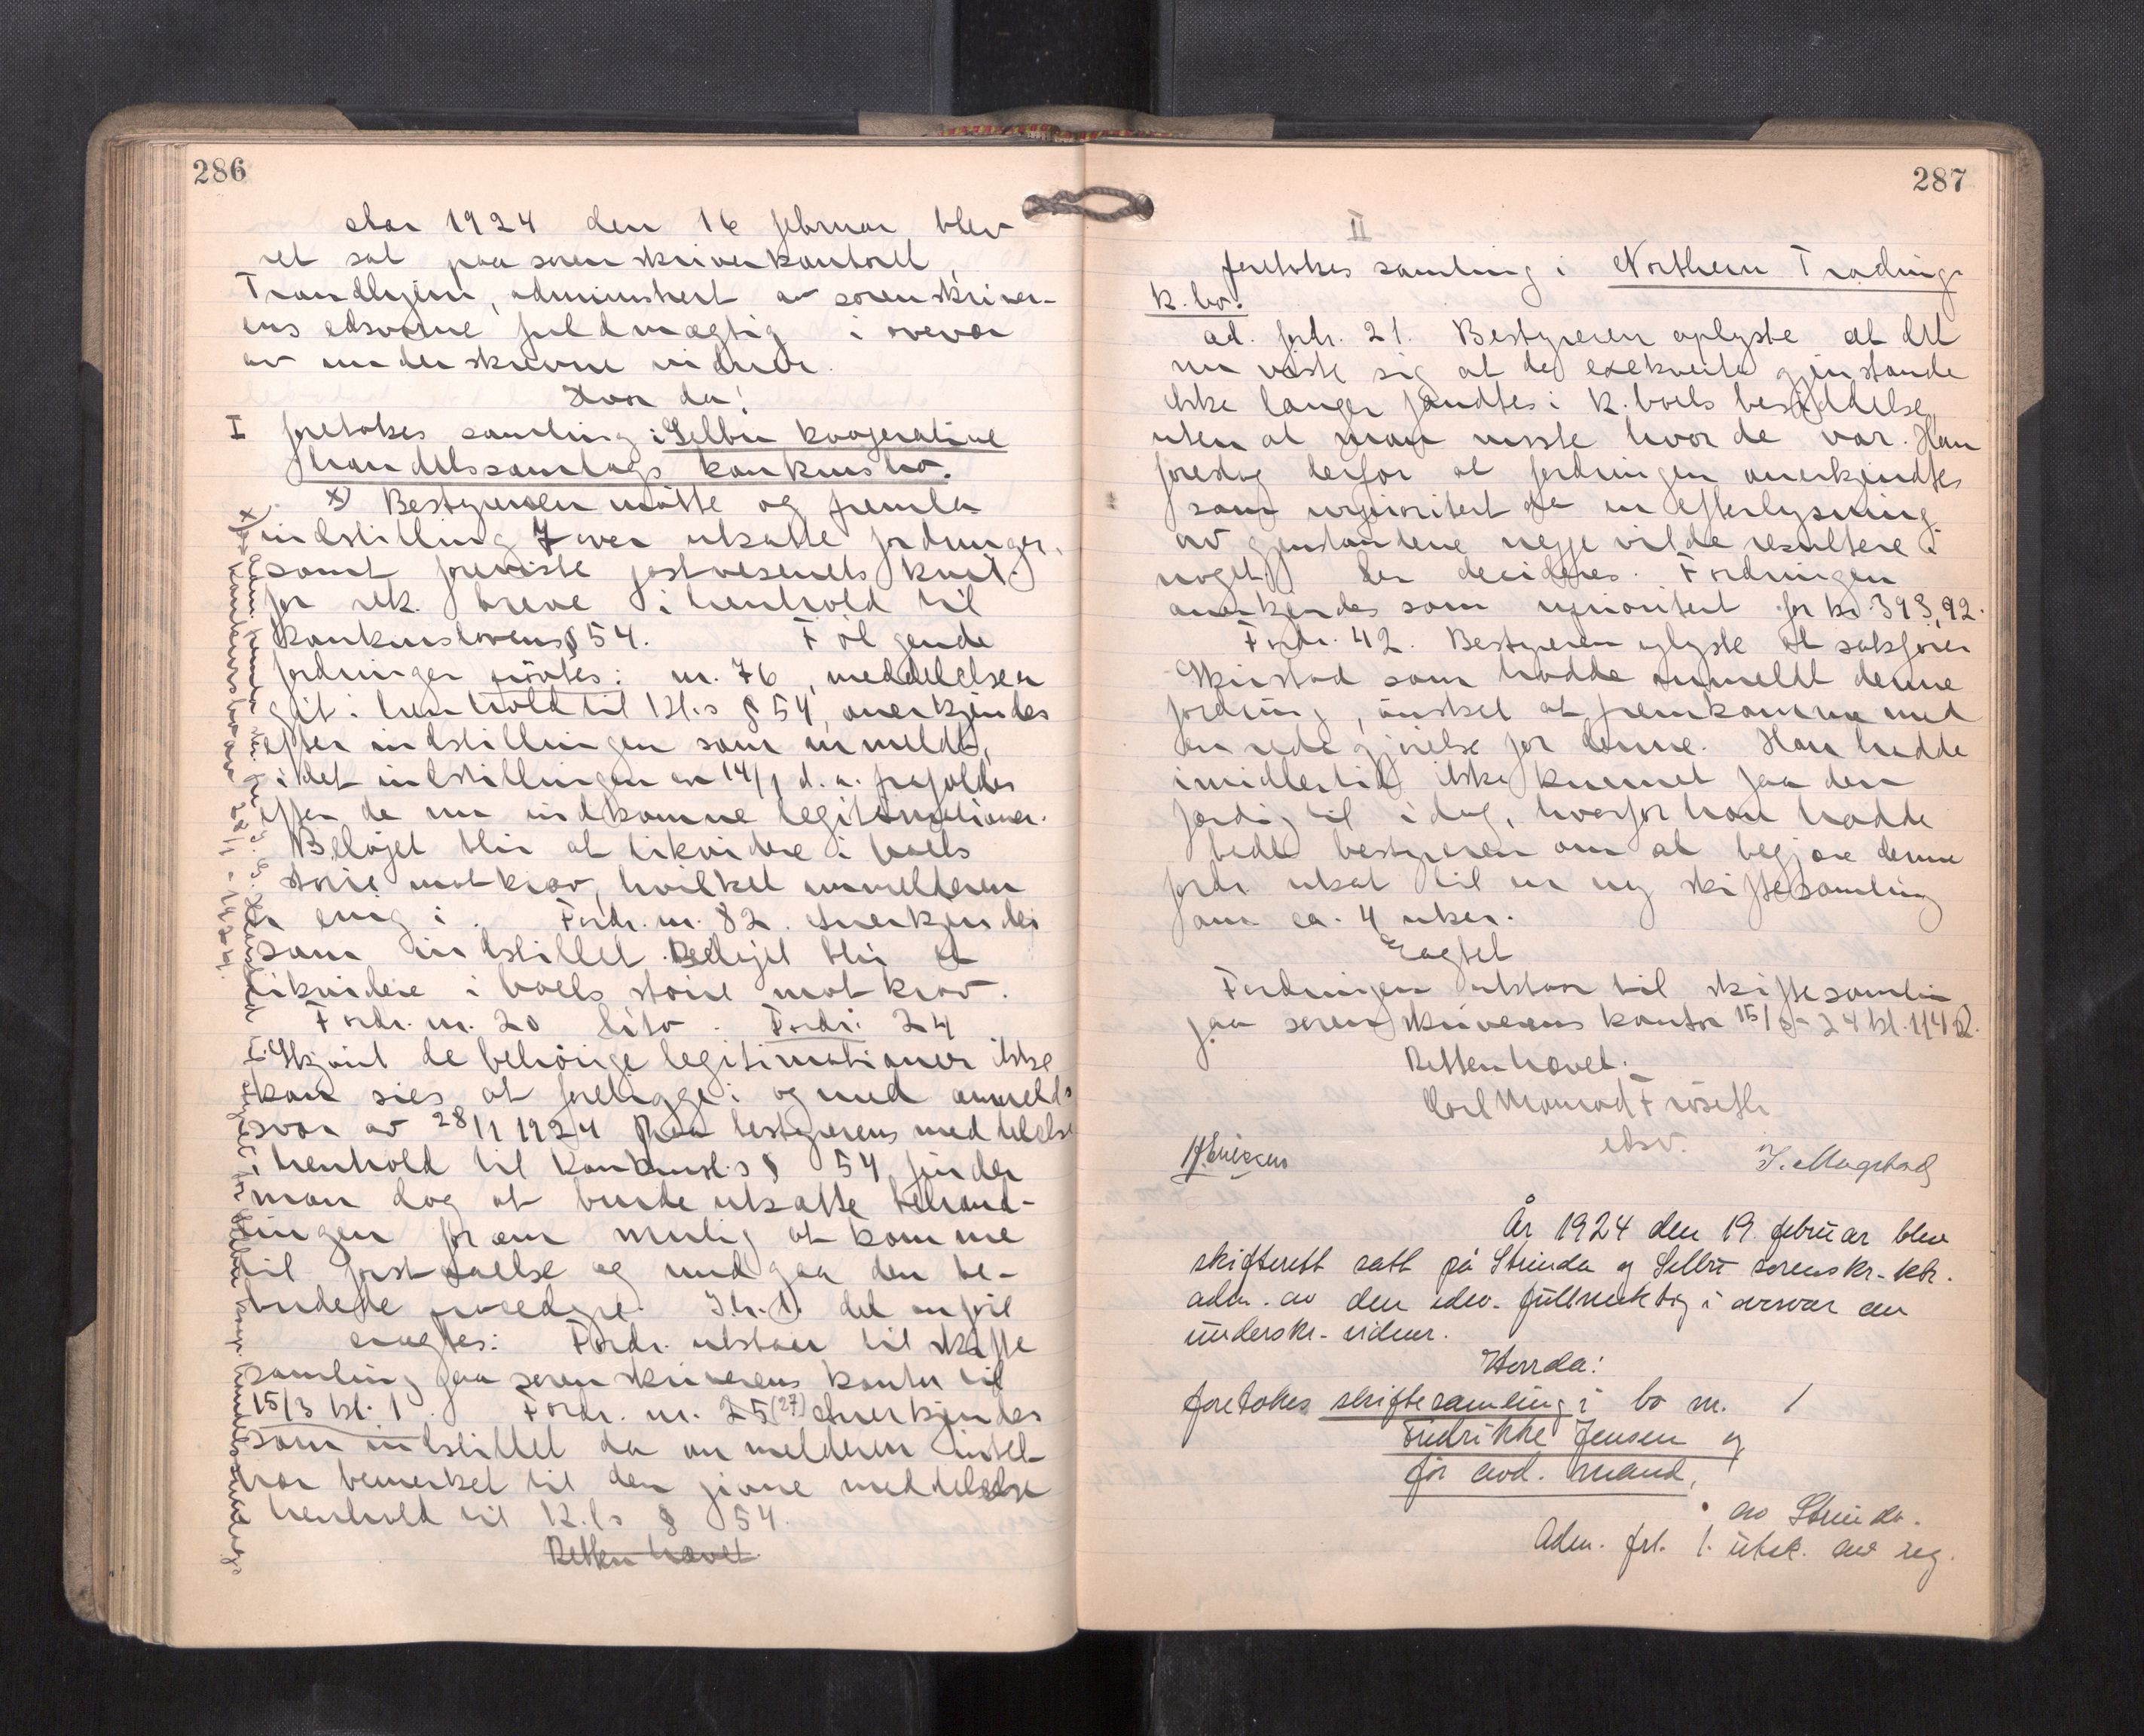 286
Aar 1924 den 16 februar blev
ret sat paa sorenskriverkontoret,
Trondhjem, administrert av sorenskriver-
ens edsvorne fuldmægtig i overvær
av underskrevne vidner.
Hvor da!
I foretokes samling i Selbu kooperative
handelssamlags konkursbo.
x) Bestyreren møtte og fremla
indstilling 7 over utsatte fordringer,
samt foreviste postvesenets kvit.
for rek. breve i henhold til
konkurslovens § 54. Følgende
fordringer prøvtes: nr. 76, meddelelsen
git i henhold til Kl.s § 54, anerkjendes
efter indstillingen som anmeldt,
idet indstillingen av 14/1 d. a. frafoldes
efter de nu indkomne legitimationer.
Beløpet blir at likvidere i boets
større motkrav, hvilket anmelderen
er enig i. Fordr. nr. 82. Anerkjendes
som indstillet. Beløpet blir at
likvidere i boets større motkrav.
Fordr. nr. 20 dito. Fordr. 24
Skjønt de behørige legitimationer ikke
kan sies at foreligge i og med anmeld.s
svar av 28/1 1924 paa bestyrerens meddelelse
i henhold til konkursl.s § 54, finder
man dog at burde utsætte behand-
lingen for om mulig at komme
til forstaaelse og undgaa den be-
budede procedyre. I h. t. det anførte
eragtes: Fordr. utstaar til skifte
samling paa sorenskriverens kontor til
15/3 kl. 1. Fordr. nr. 25 (27) Anerkjendes
som indstillet da anmelderen intet
har bemerket til den givne meddelelse
i henhold til K.l.s § 54.
Retten hævet
287
II
foretokes samling i Northern Tradings
k. bo.
ad. fordr. 21. Bestyreren oplyste at det
nu viste sig at de exekverte gjenstande
ikke længer fandtes i k. boets besiddelse,
uten at man visste hvor de var. Han
foreslog derfor at fordringen anerkjendtes
som uprioritert da en efterlysning
av gjenstandene neppe vilde resultere i
noget. Der decideres. Fordringen
anerkjendes som uprioritert for kr. 393,92.
Fordr. 42. Bestyreren oplyste at sakfører
Skirstad som hadde anmeldt denne
fordring, ønsket at fremkomme med
en redegjørelse for denne. Han hadde
imidlertid ikke kunnet faa den
færdig til idag, hvorfor han hadde
bedt bestyreren om at begjære denne
fordr. utsat til en ny skiftesamling
om ca. 4 uker.
Eragtet
Fordringen utstaar til skiftesamling
paa sorenskriverens kontor 15/3 - 24 kl. 1 1/4
Retten hævet.
Carl Monrad Frøseth
edsv.
H. Eriksen
I. Magstad
År 1924 den 19. februar blev
skifterett satt på Strinda og Selbu sorenskr.-ktr.
adm. av den edsv. fullmektig i overvær av
underskr. vidner.
Hvorda:
foretokes skiftesamling i bo nr. 1
Fredrikke Jensen og
før avd. mand,
av Strinda.
Adm. frl. 1. utsk. av reg.